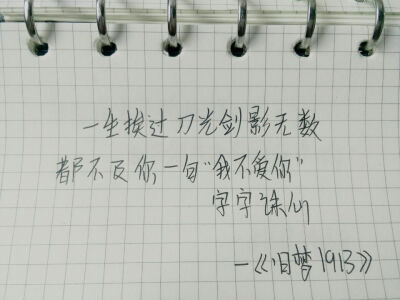 一生挨过刀光剑影无数
都不及你一句“我不爱你”
字字诛仙
—《旧梦1913》